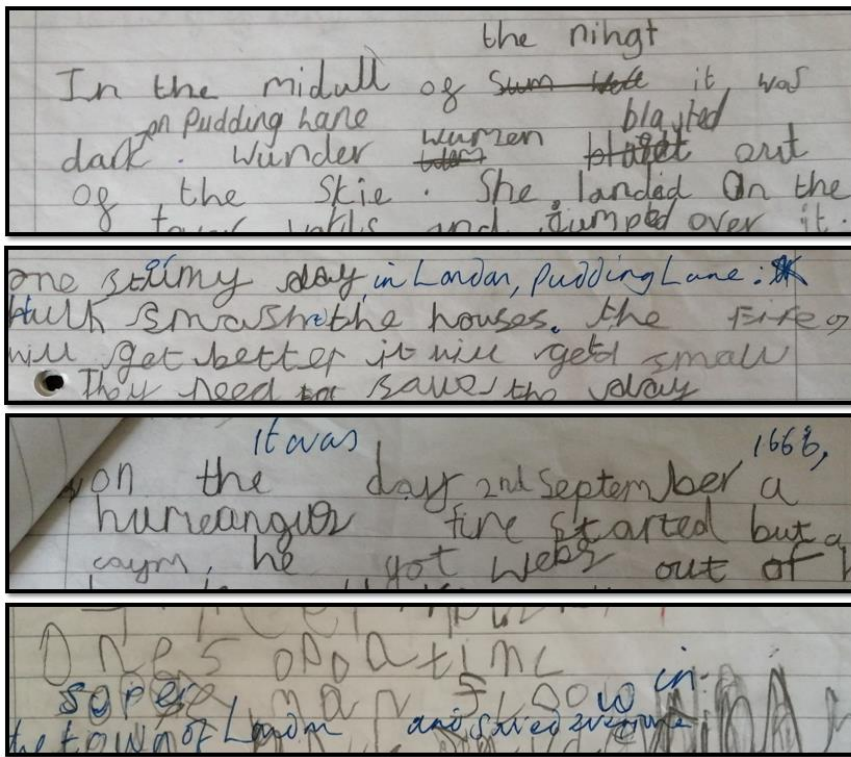 the nihgt
In the midull of sum it was
on Pudding Lane wumen blasted
dark. Wunder out
of the Skie. She landed On the
and jumped over it.
one stimy day, in London, Pudding Lane:
Hulk smash the houses. the Fire
will get better it will get small
They need to save the day
it was 1666,
on the day 2nd September a
humeangus fire started but a
caym, he got webs out of
Ones opo a time
soper man in
the town of London and saved everyone